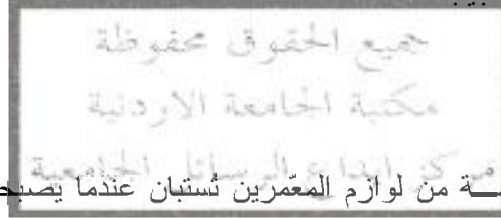 جميع الحقوق محفوظة
مكتبة الجامعة الاردنية
مركز ايداع الرسائل الجامعية
ـة من لوازم المعمّرين تُستبان عندما يصبح